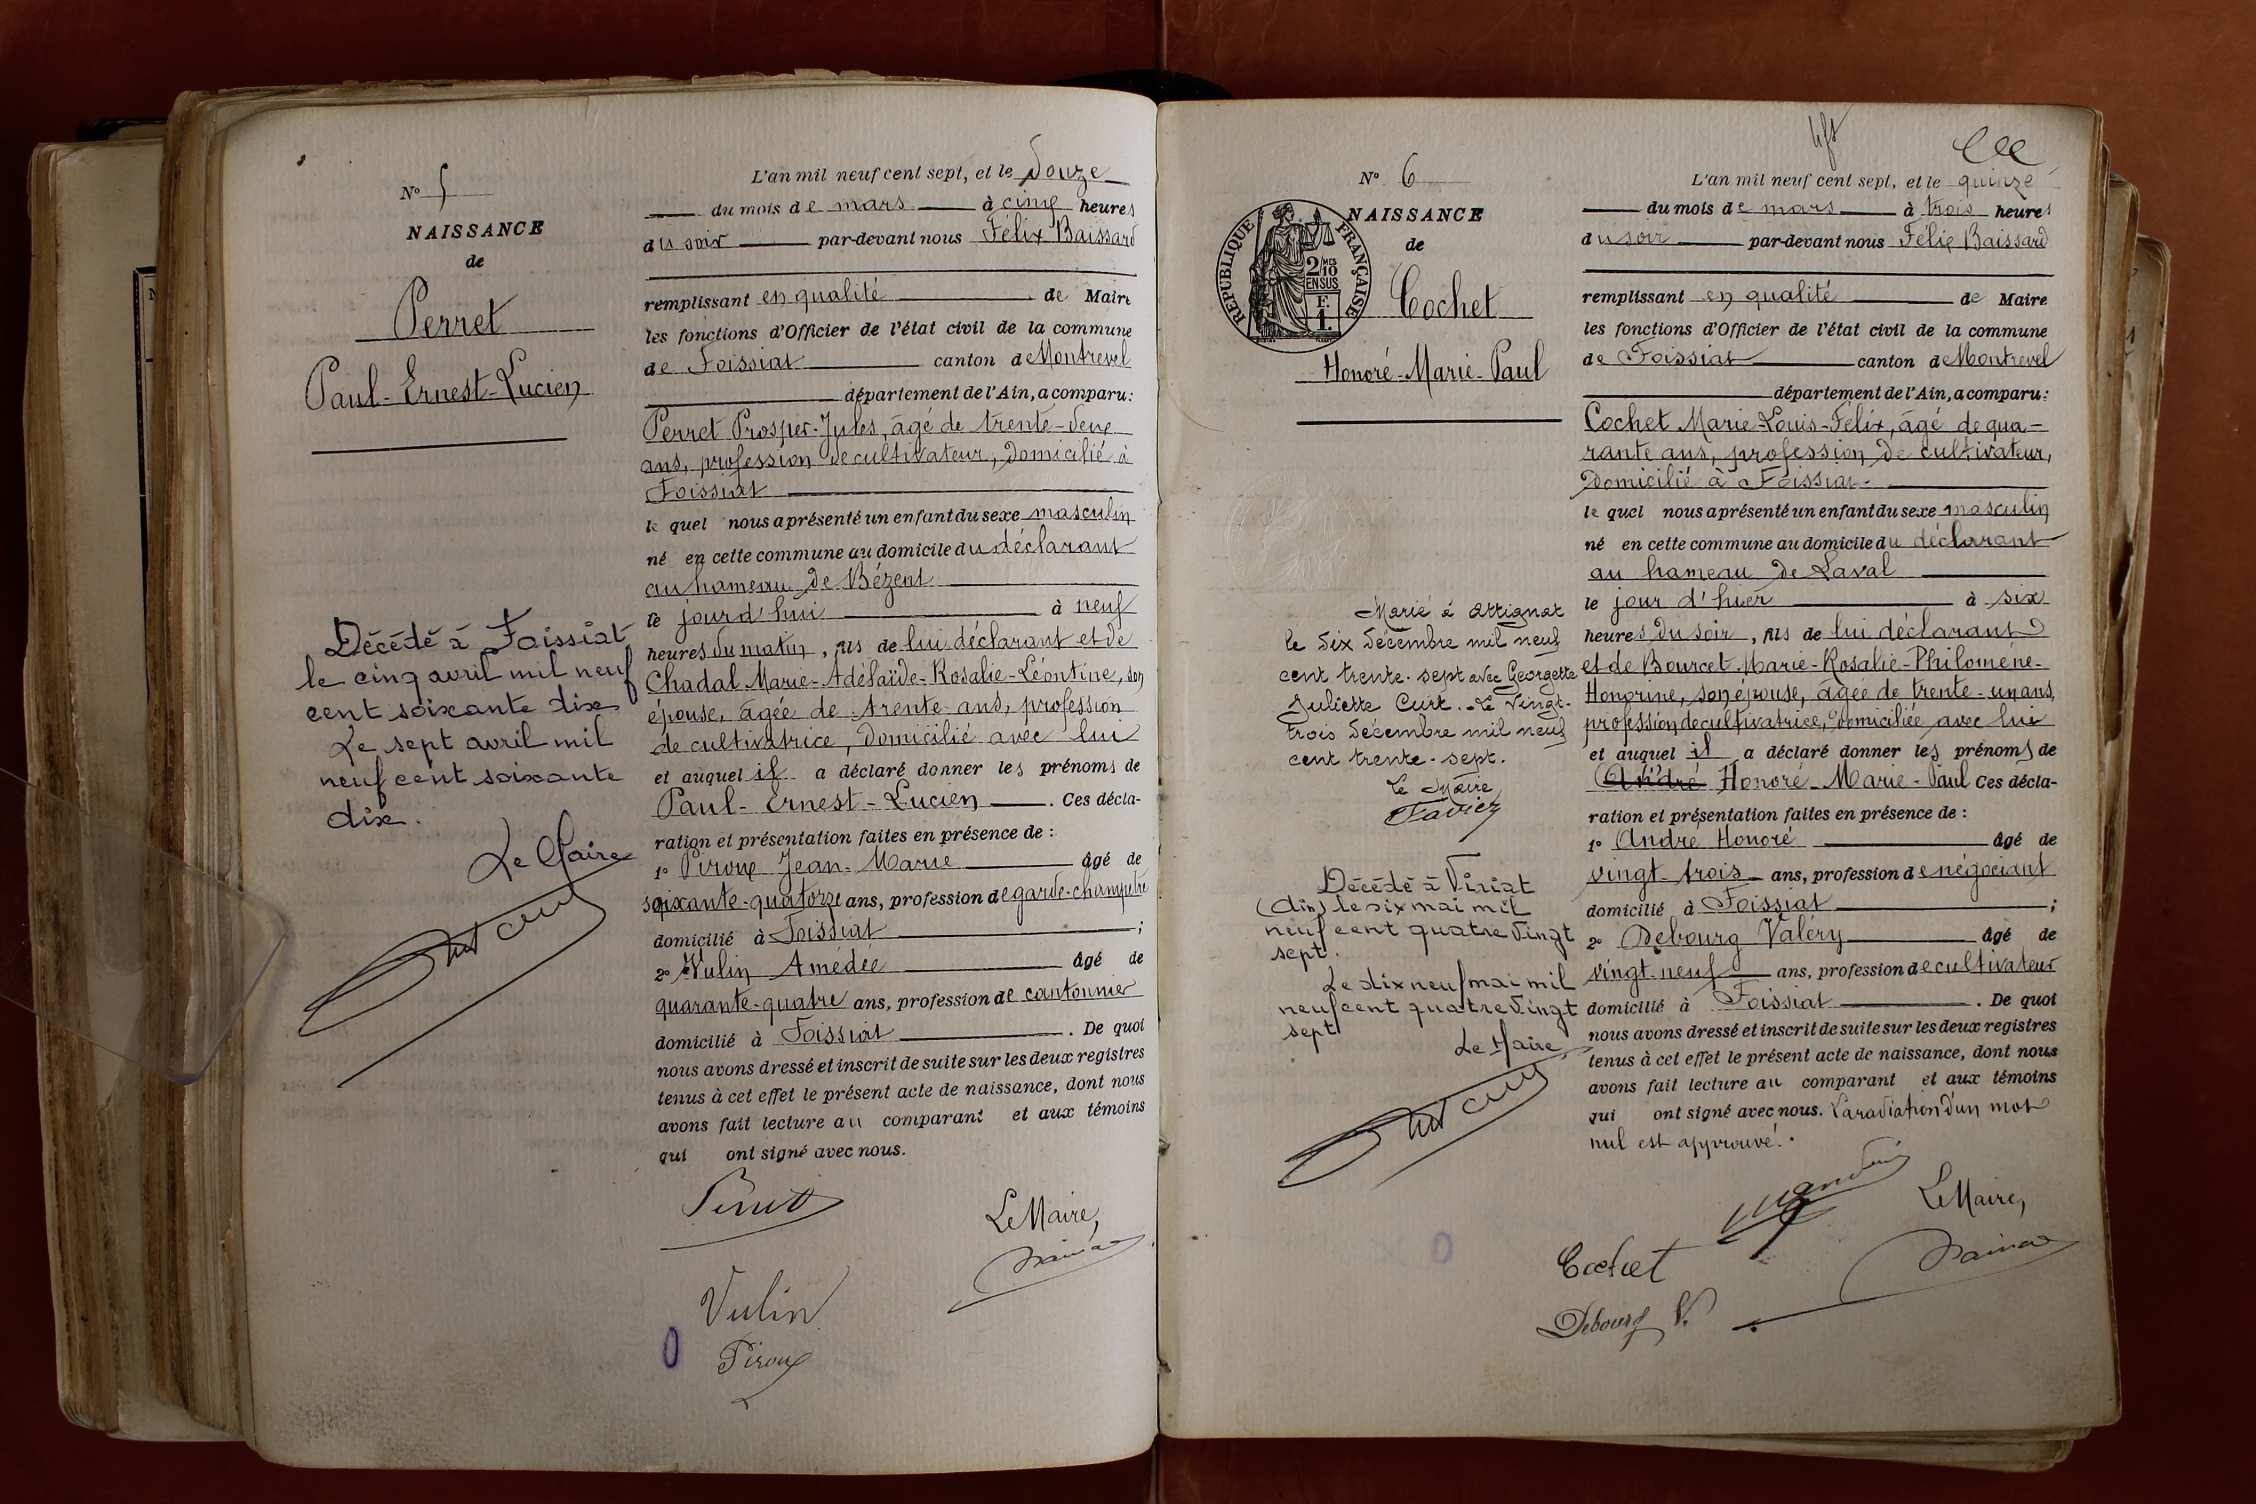 N° 5
NAISSANCE
de
Perret
Paul-Ernest-Lucien
Décédé à Foissiat
le cinq avril mil neuf
cent soixante dix
Le sept avril mil
neuf cent soixante
dix.
Le Maire
L'an mil neuf cent sept, et le douze
du mois de mars à cinq heures
du soir par-devant nous Félix Baissard
remplissant en qualité de Maire
les fonctions d'Officier de l'état civil de la commune
de Foissiat canton de Montrevel
département de l'Ain, a comparu:
Perret Prosper-Jules, âgé de trente-deux
ans, profession de cultivateur, domicilié à
Foissiat
le quel nous a présenté un enfant du sexe masculin
né en cette commune au domicile du déclarant
au hameau de Bézent
le jour d'hui à neuf
heures du matin, fils de lui déclarant et de
Chadal Marie-Adélaïde-Rosalie-Léontine, son
épouse, âgée de trente ans, profession
de cultivatrice, domicilié avec lui
et auquel il a déclaré donner les prénoms de
Paul-Ernest-Lucien. Ces décla-
ration et présentation faites en présence de:
1° Piroux Jean-Marie âgé de
soixante-quatorze ans, profession de garde-champêtre
domicilié à Foissiat;
2° Vulin Amédée âgé de
quarante-quatre ans, profession de cantonnier
domicilié à Foissiat. De quoi
nous avons dressé et inscrit de suite sur les deux registres
tenus à cet effet le présent acte de naissance, dont nous
avons fait lecture au comparant et aux témoins
qui ont signé avec nous.
Perret
Le Maire,
Vulin
Piroux
N° 6
NAISSANCE
de
RÉPUBLIQUE FRANÇAISE
2/10 MES
EN SUS
F.
1.
Cochet
Honoré-Marie-Paul
Marié à Attignat
le dix décembre mil neuf
cent trente-sept avec Georgette
Juliette Curt. Le vingt-
trois décembre mil neuf
cent trente-sept.
Le Maire
Décédé à Viriat
(Ain) le six mai mil
neuf cent quatre vingt
sept.
Le dix neuf mai mil
neuf cent quatre vingt
sept
Le Maire,
L'an mil neuf cent sept, et le quinze
du mois de mars à trois heures
du soir par-devant nous Félix Baissard
remplissant en qualité de Maire
les fonctions d'Officier de l'état civil de la commune
de Foissiat canton de Montrevel
département de l'Ain, a comparu:
Cochet Marie-Louis-Félix, âgé de qua-
rante ans, profession de cultivateur,
domicilié à Foissiat.
le quel nous a présenté un enfant du sexe masculin
né en cette commune au domicile du déclarant
au hameau de Laval
le jour d'hier à six
heures du soir, fils de lui déclarant
et de Bourcet Marie-Rosalie-Philomène-
Honorine, son épouse, âgée de trente-un ans,
profession de cultivatrice, domiciliée avec lui
et auquel il a déclaré donner les prénoms de
André Honoré-Marie-Paul Ces décla-
ration et présentation faites en présence de:
1° André Honoré âgé de
vingt-trois ans, profession de négociant
domicilié à Foissiat;
2° Debourg Valéry âgé de
vingt-neuf ans, profession de cultivateur
domicilié à Foissiat. De quoi
nous avons dressé et inscrit de suite sur les deux registres
tenus à cet effet le présent acte de naissance, dont nous
avons fait lecture au comparant et aux témoins
qui ont signé avec nous. La radiation d'un mot
nul est approuvé.
Le Maire,
Cochet
Debourg V.